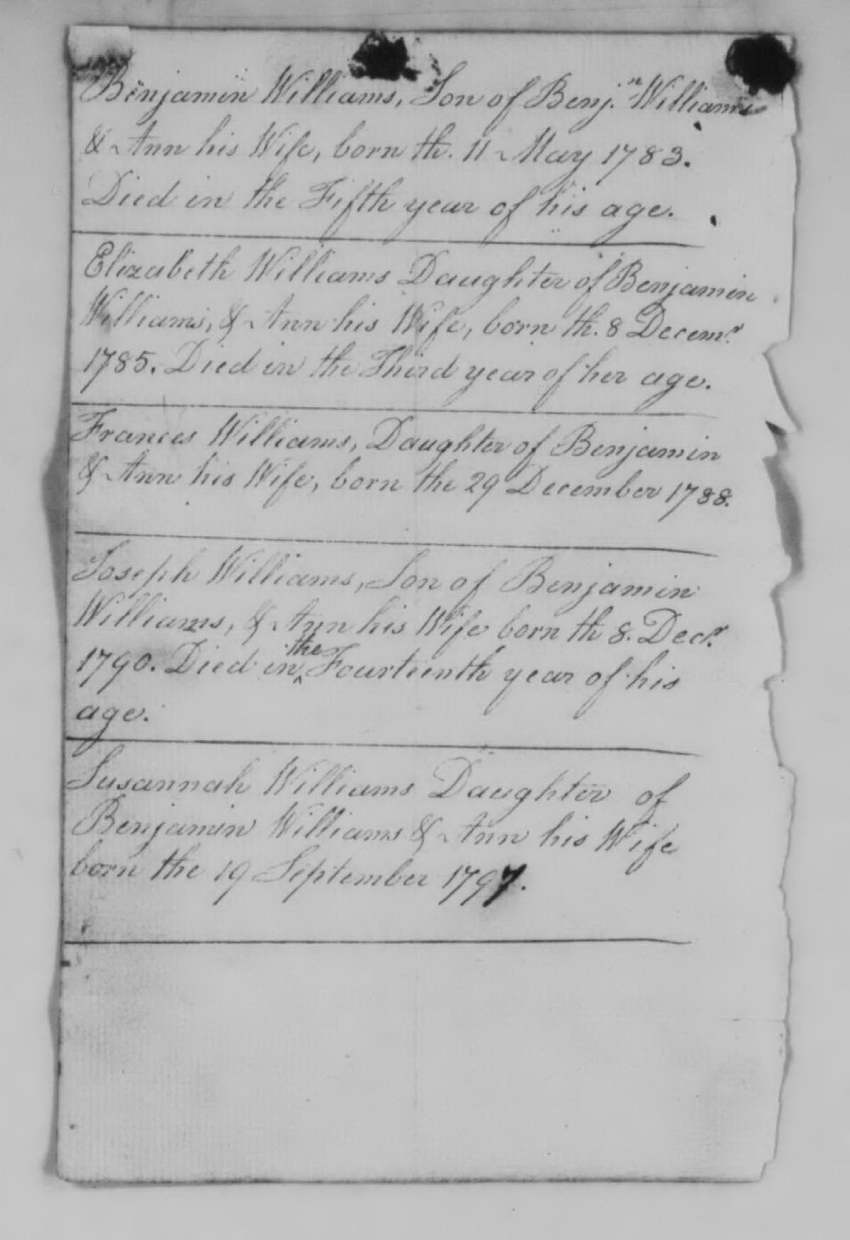 Benjamin Williams, Son of Benj.n Williams
& Ann his Wife, born th. 11 May 1783.
Died in the Fifth year of his age.
Elizabeth Williams Daughter of Benjamin
Williams, & Ann his Wife, born th. 8 Decemr.
1785. Died in the Third year of her age.
Frances Williams, Daughter of Benjamin
& Ann his Wife, born the 29 December 1788.
Joseph Williams, Son of Benjamin
Williams, & Ann his Wife born th 8. Decr.
1790. Died in ^the Fourteenth year of his
age.
Susannah Williams Daughter of
Benjamin Williams & Ann his Wife
born the 19 September 1797.